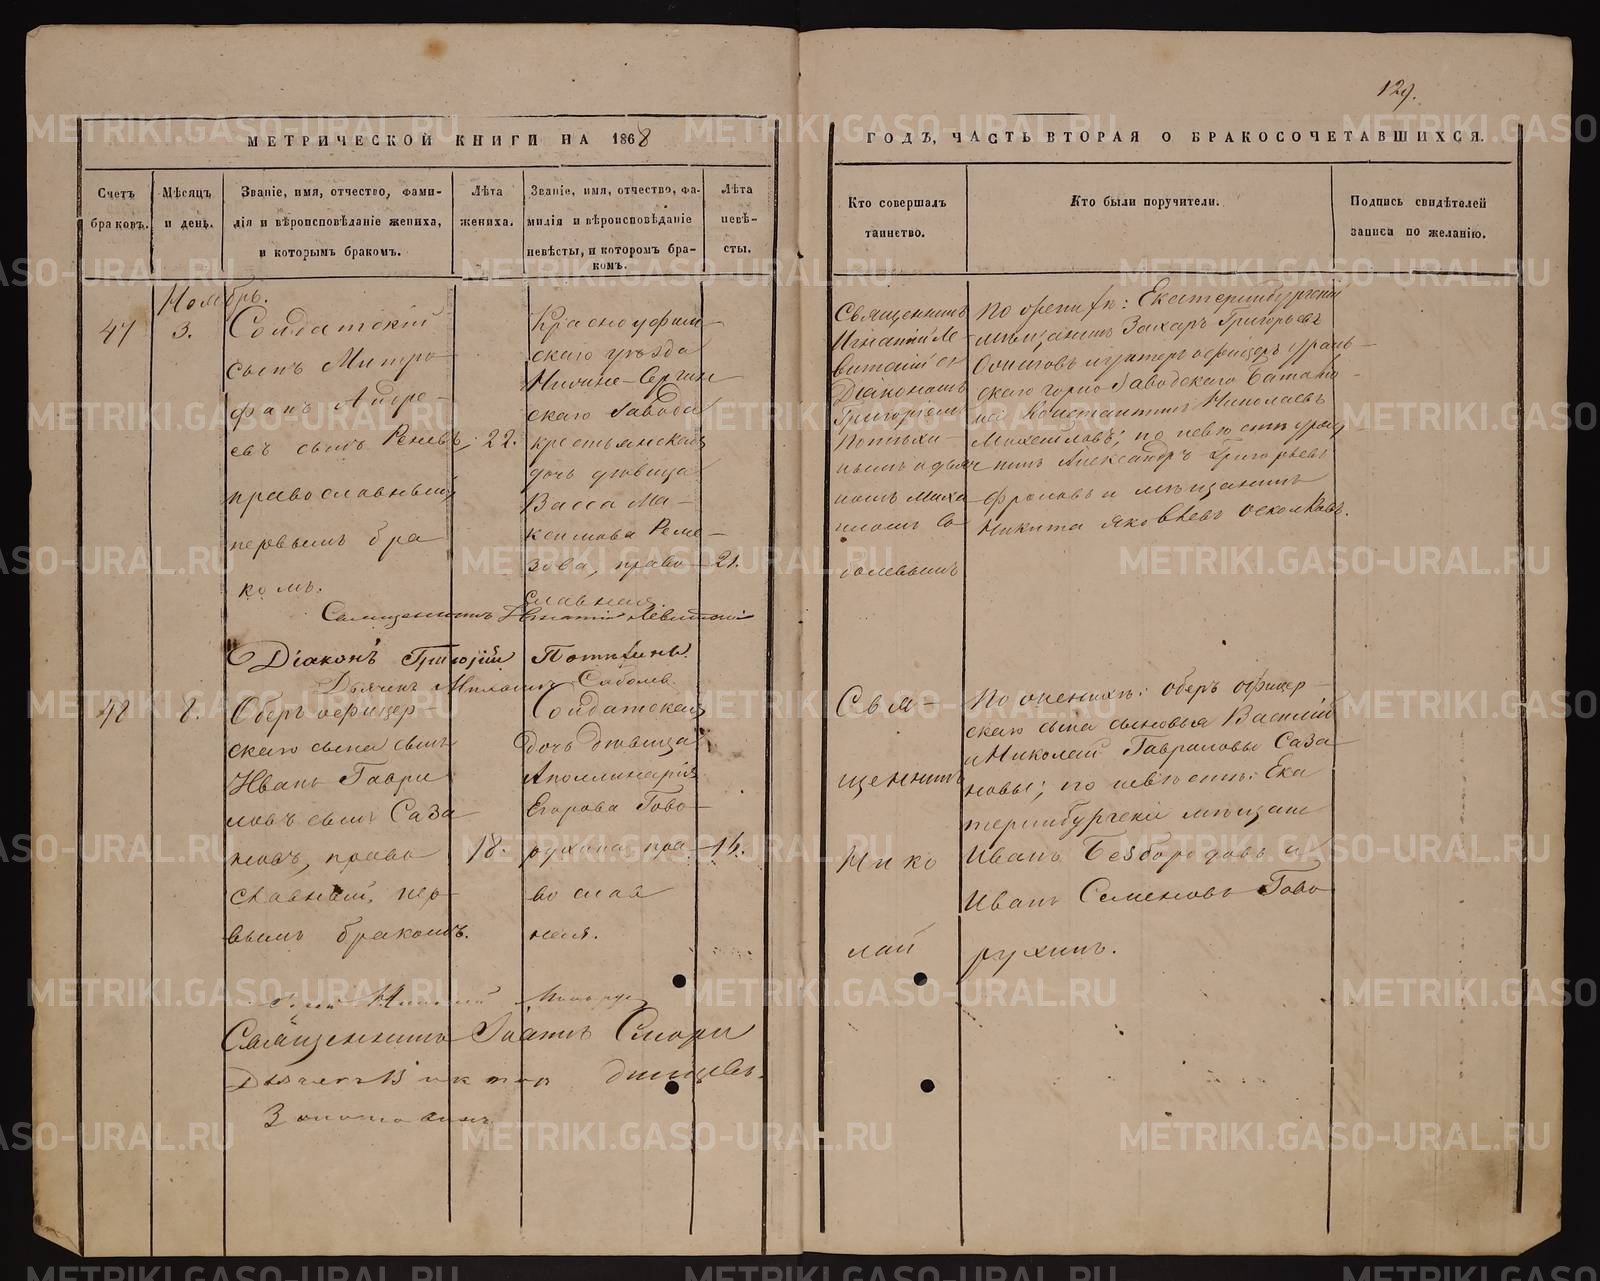 129.
МЕТРИЧЕСКОЙ КНИГИ НА 1868
ГОДЪ, ЧАСТЬ ВТОРАЯ О БРАКОСОЧЕТАВШИХСЯ.
Счетъ браковъ.
Мѣсяцъ и день.
Званіе, имя, отчество, фами-
лія и вѣроисповѣданіе жениха,
и которымъ бракомъ.
Лѣта
жениха.
Званіе, имя, отчество, фа-
милія и вѣроисповѣданіе
невѣсты, и котором бра-
комъ.
Лѣта
невѣ-
сты.
Кто совершалъ
таинство.
Кто были поручители.
Подпись свидѣтелей
записи по желанію.
Ноябрь.
47
3.
Солдатскій
сынъ Митро
фанъ Андре-
евъ сынъ
православный
первымъ бра
комъ.
22.
Красноуфим-
скаго уѣзда
Нижне-Сергин
скаго завода
крестьянская
дочь дѣвица
Васса Ма-
ксимова Реме-
зова, право-
славная.
21.
Священникъ
Игнатій Ле-
витскій съ
Діакономъ
Григоріемъ
Потѣхи-
нымъ и дьяч
комъ Миха
иломъ Со
болевымъ
Екатеринбургскій
мѣщанинъ Захаръ Григорьевъ
унтеръ офицеръ ураль-
скаго горно-заводскаго батал
Константинъ Николаевъ
Михайловъ; по невѣстѣ
Александръ Григорьевъ
Фроловъ и мѣщанинъ
Никита Яковлевъ Осколковъ.
Священникъ Игнатій Левитскій
Діаконъ Григорій Потѣхинъ
Дьячекъ Михаилъ Соболев
48
8.
Оберъ офицер-
скаго сына сынъ
Иванъ Гаври
ловъ сынъ Саза
новъ, право
славный, пер
вымъ бракомъ.
18.
Солдатская
дочь дѣвица
Аполлинарія
Егорова Гово-
рухина пра-
во слав
ная.
Свя-
щенникъ
Нико
лай
По женихѣ: оберъ офицер-
скаго сына сыновья Василій
и Николай Гавриловы Саза
новы; по невѣстѣ: Ека
теринбургскіе мѣщане
Иванъ Безбородовъ и
Иванъ Семеновъ Гово
рухинъ.
Священникъ Іоаннъ
Дьячекъ Виктор